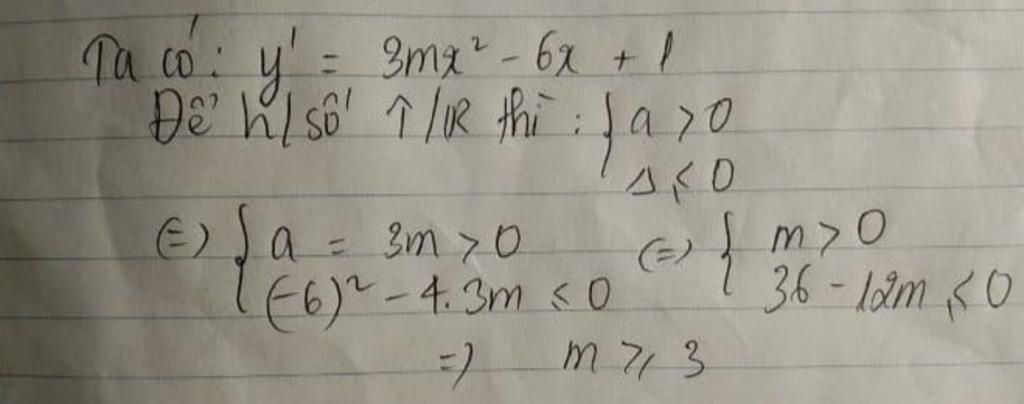 Ta có: y' = 3mx² - 6x + 1
Để h/số ↑/R thì: { a > 0
Δ ≤ 0
(=) { a = 3m > 0 (=) { m > 0
(-6)² - 4.3m ≤ 0 36 - 12m ≤ 0
=) m ≥ 3